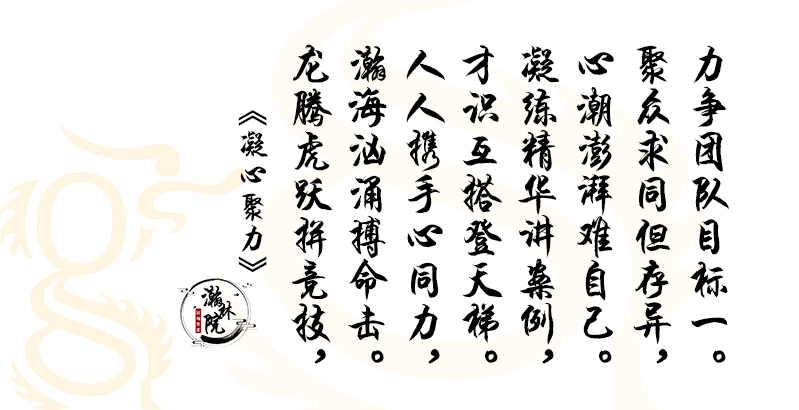 《凝心聚力》
龙腾虎跃拼竞技，
瀚海汹涌搏命击。
人人携手心同力，
才识互搭登天梯。
凝练精华讲案例，
心潮澎湃难自己。
聚众求同但存异，
力争团队目标一。
瀚林院